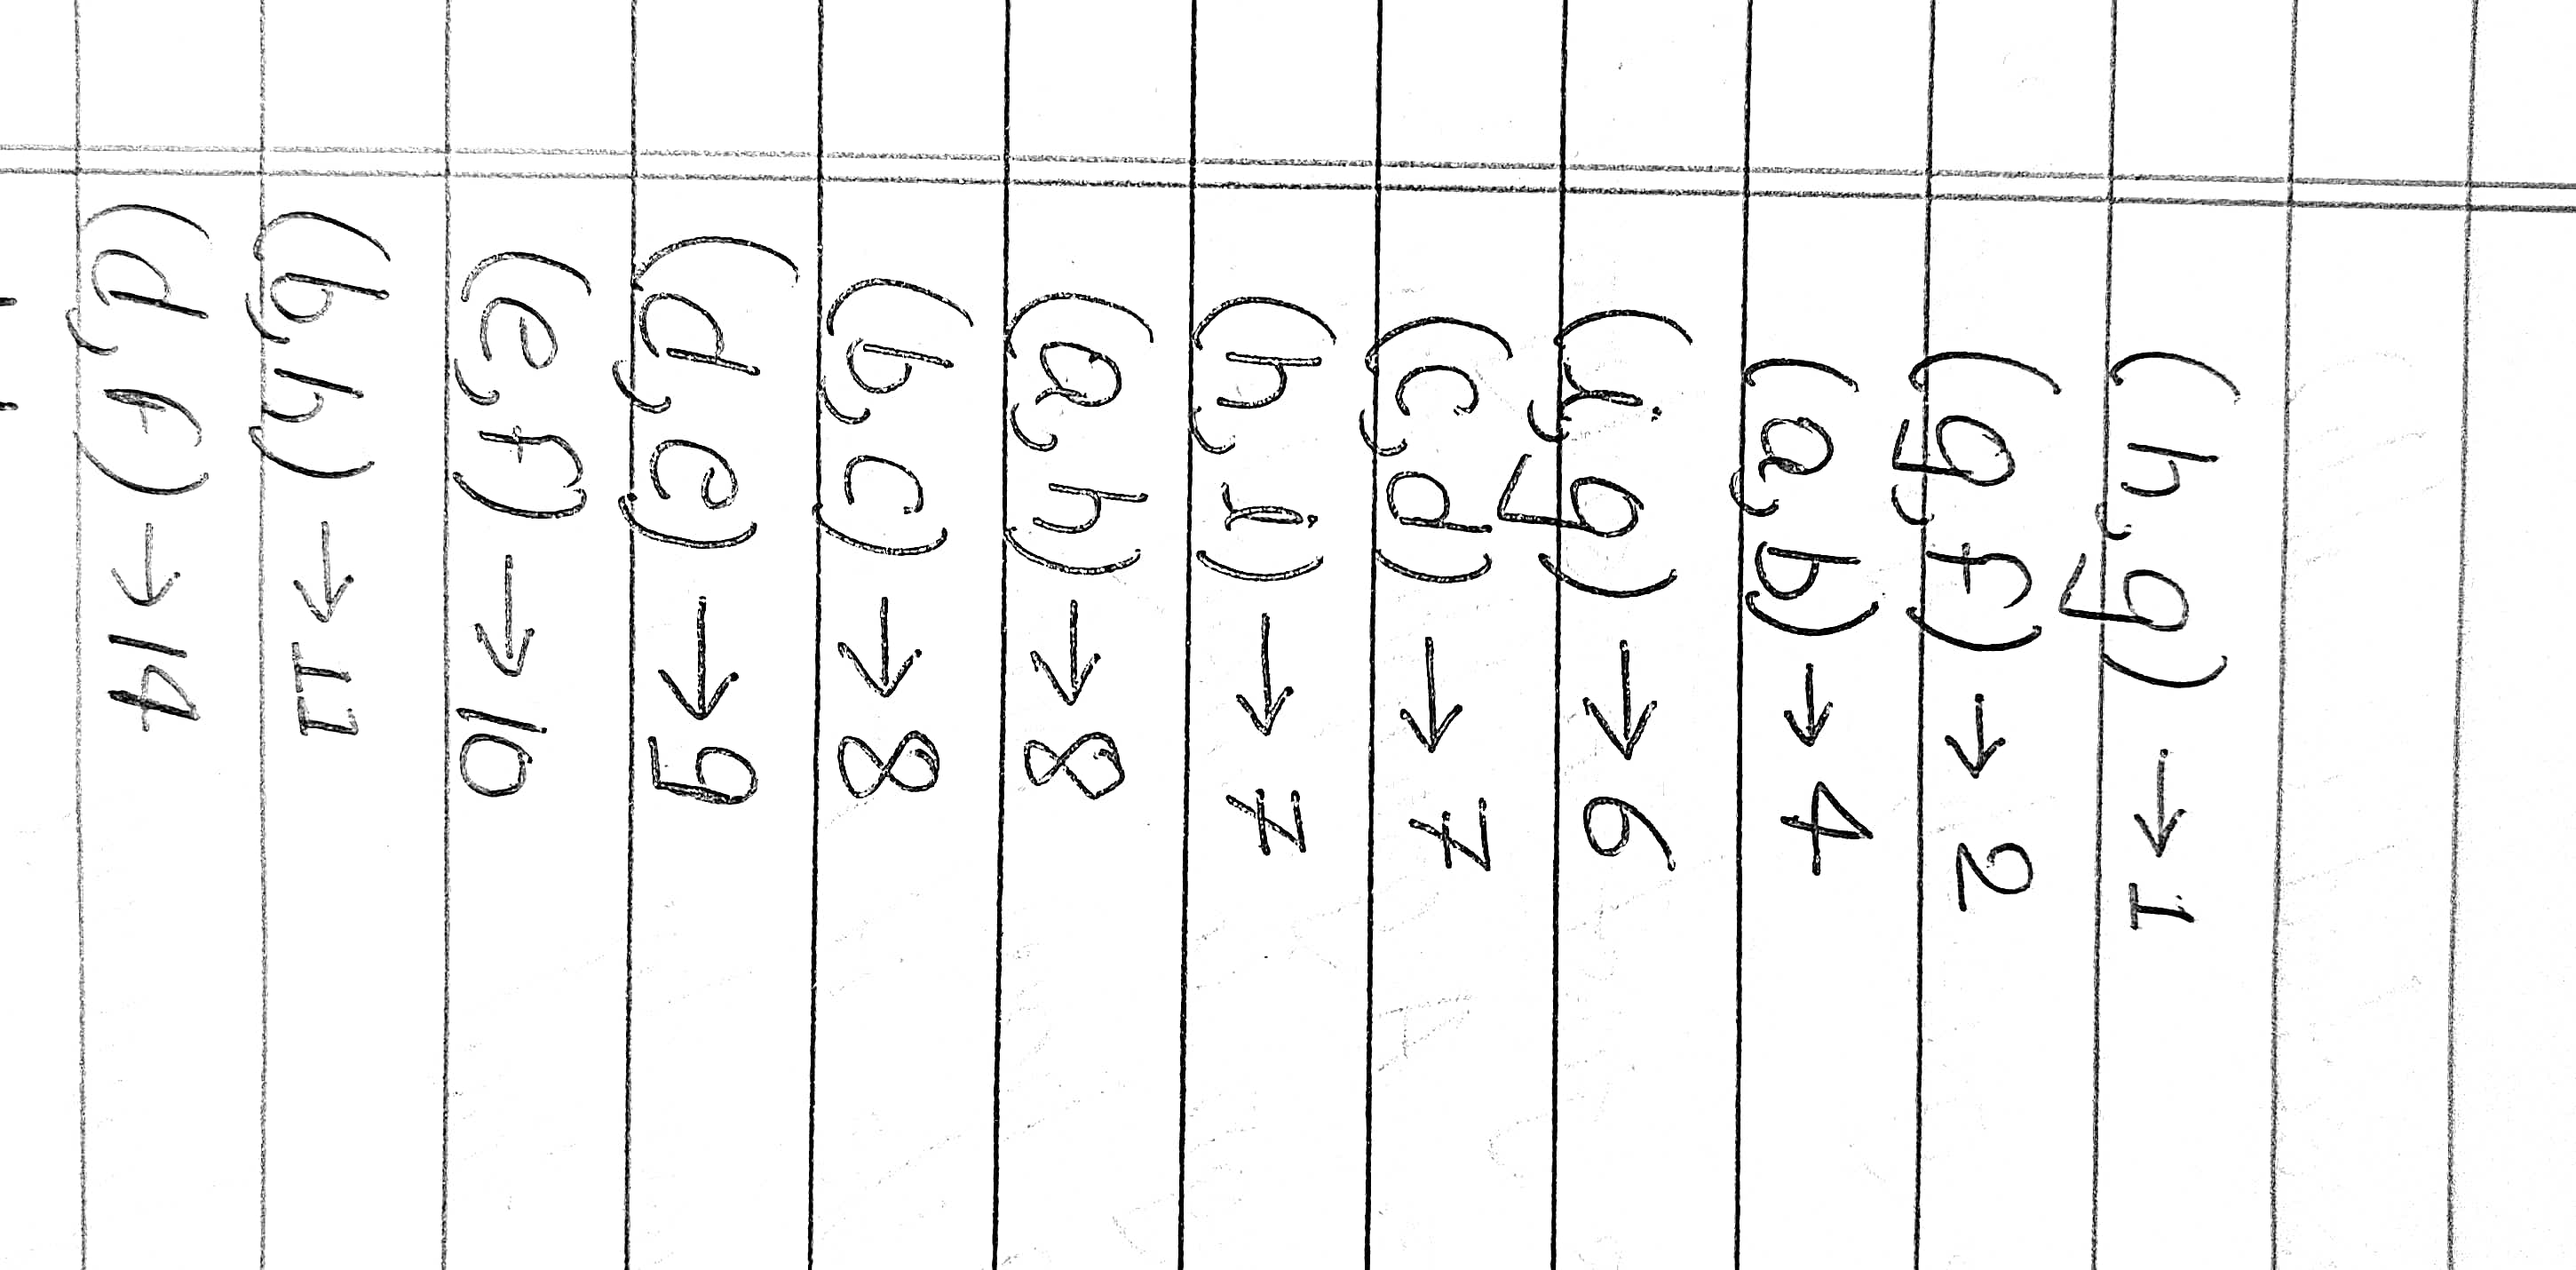 (h,g) → 1
(g,f) → 2
(a,b) → 4
(i,g) → 6
(c,d) → 7
(h,i) → 7
(a,h) → 8
(b,c) → 8
(d,e) → 9
(e,f) → 10
(b,h) → 11
(d,f) → 14